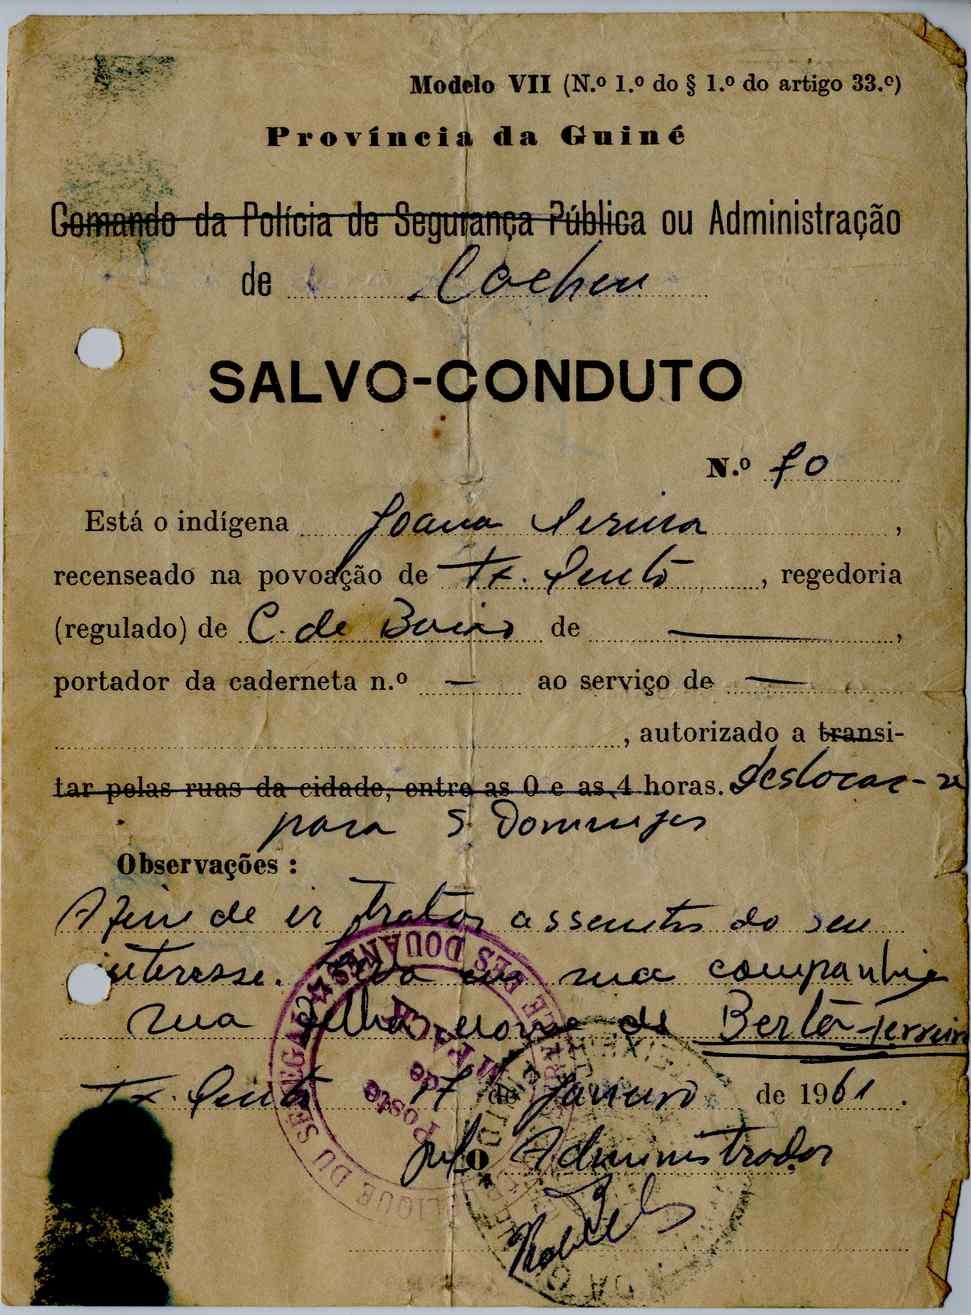 Modelo VII (N.º 1.º do § 1.º do artigo 33.º)
Província da Guiné
Comando da Polícia de Segurança Pública ou Administração
de Cacheu
SALVO-CONDUTO
N.º 70
Está o indígena Joana Pereira,
recenseado na povoação de Tx. Pintô, regedoria
(regulado) de C. de Baixo de —,
portador da caderneta n.º — ao serviço de —
, autorizado a transi-
tar pelas ruas da cidade, entre as 0 e as 4 horas. deslocar-se
para S. Domingos
Observações :
Afim de ir tratar assuntos do seu
interesse. Leva em sua companhia
sua filha nome de Berta Ferreira
Tx. Pintô 17 de Janeiro de 1961.
pelo O Administrador
POSTE DES DOUANES
Poste
de
M'PACK
DU SENEGAL